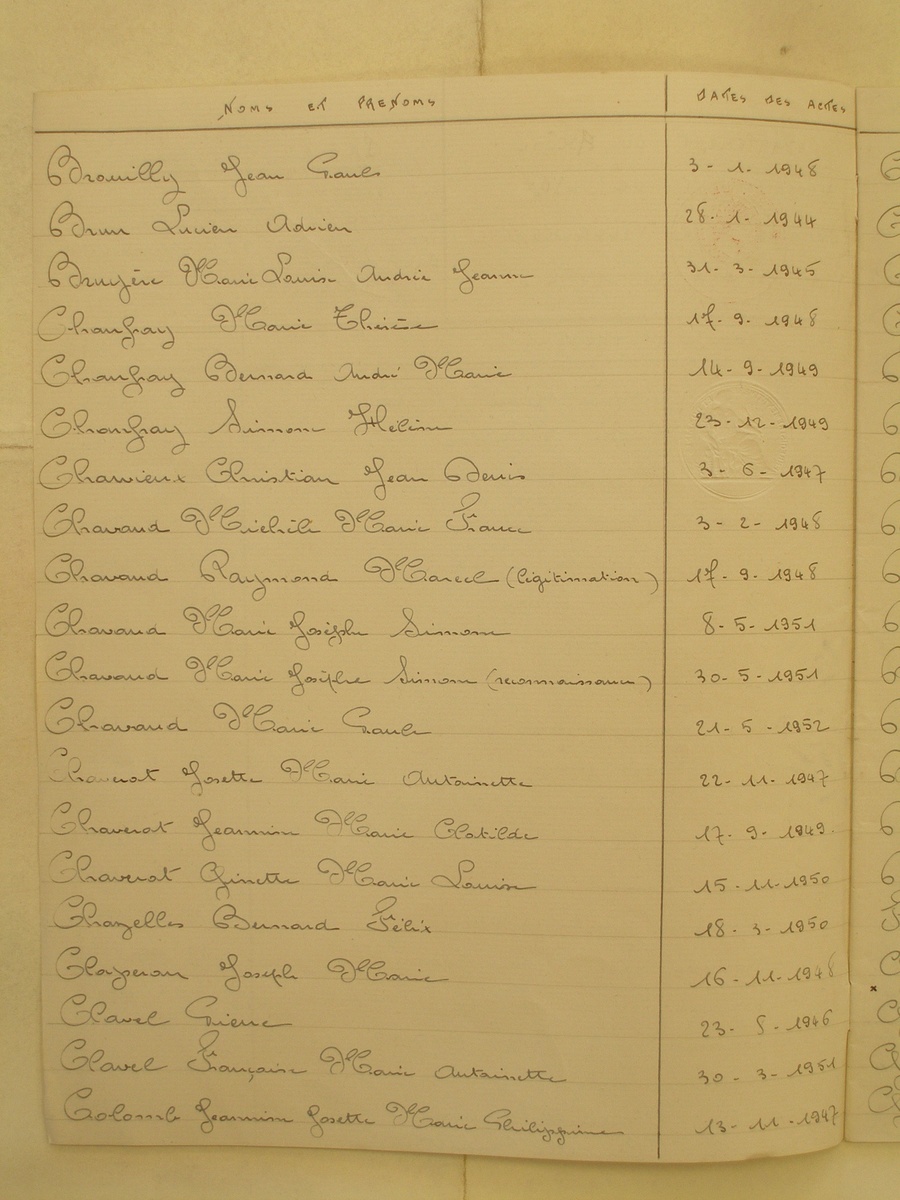 NOMS ET PRENOMS DATES DES ACTES
Brouilly Jean Paul 3 - 1 - 1948
Brun Lucien Adrien 28 - 1 - 1944
Bruyère Marie Louise Andrée Jeanne 31 - 3 - 1945
Chanfray Marie Thérèse 17 - 9 - 1948
Chanfray Bernard André Marie 14 - 9 - 1949
Chanfray Simone Hélène 23 - 12 - 1949
Charvieux Christian Jean Denis 3 - 6 - 1947
Chavand Michèle Marie France 3 - 2 - 1948
Chavand Raymond Marcel (légitimation) 17 - 9 - 1948
Chavand Marie Josèphe Simone 8 - 5 - 1951
Chavand Marie Josèphe Simone (reconnaissance) 30 - 5 - 1951
Chavand Marie Paule 21 - 5 - 1952
Chaverot Josette Marie Antoinette 22 - 11 - 1947
Chaverot Jeannine Marie Clotilde 17 - 9 - 1949
Chaverot Ginette Marie Louise 15 - 11 - 1950
Chazelles Bernard Félix 18 - 3 - 1950
Claperon Joseph Marie 16 - 11 - 1948
Clavel Pierre 23 - 5 - 1946
Clavel Françoise Marie Antoinette 30 - 3 - 1951
Colomb Jeannine Josette Marie Philippine 13 - 11 - 1947